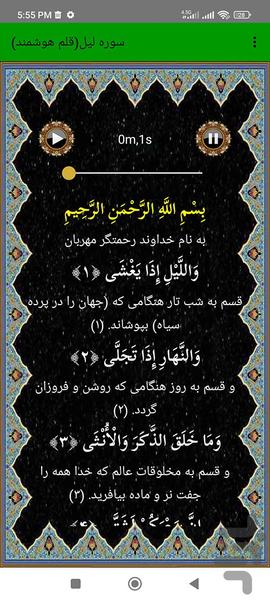 5:55 PM
4.5G
28
سوره لیل(قلم هوشمند)
0m,1s
بِسْمِ اللَّهِ الرَّحْمَنِ الرَّحِيمِ
به نام خداوند رحمتگر مهربان
وَاللَّيْلِ إِذَا يَغْشَى ﴿۱﴾
قسم به شب تار هنگامی که (جهان را در پرده
سیاه) بپوشاند. (۱)
وَالنَّهَارِ إِذَا تَجَلَّى ﴿۲﴾
و قسم به روز هنگامی که روشن و فروزان
گردد. (۲)
وَمَا خَلَقَ الذَّكَرَ وَالْأُنْثَى ﴿۳﴾
و قسم به مخلوقات عالم که خدا همه را
جفت نر و ماده بیافرید. (۳)